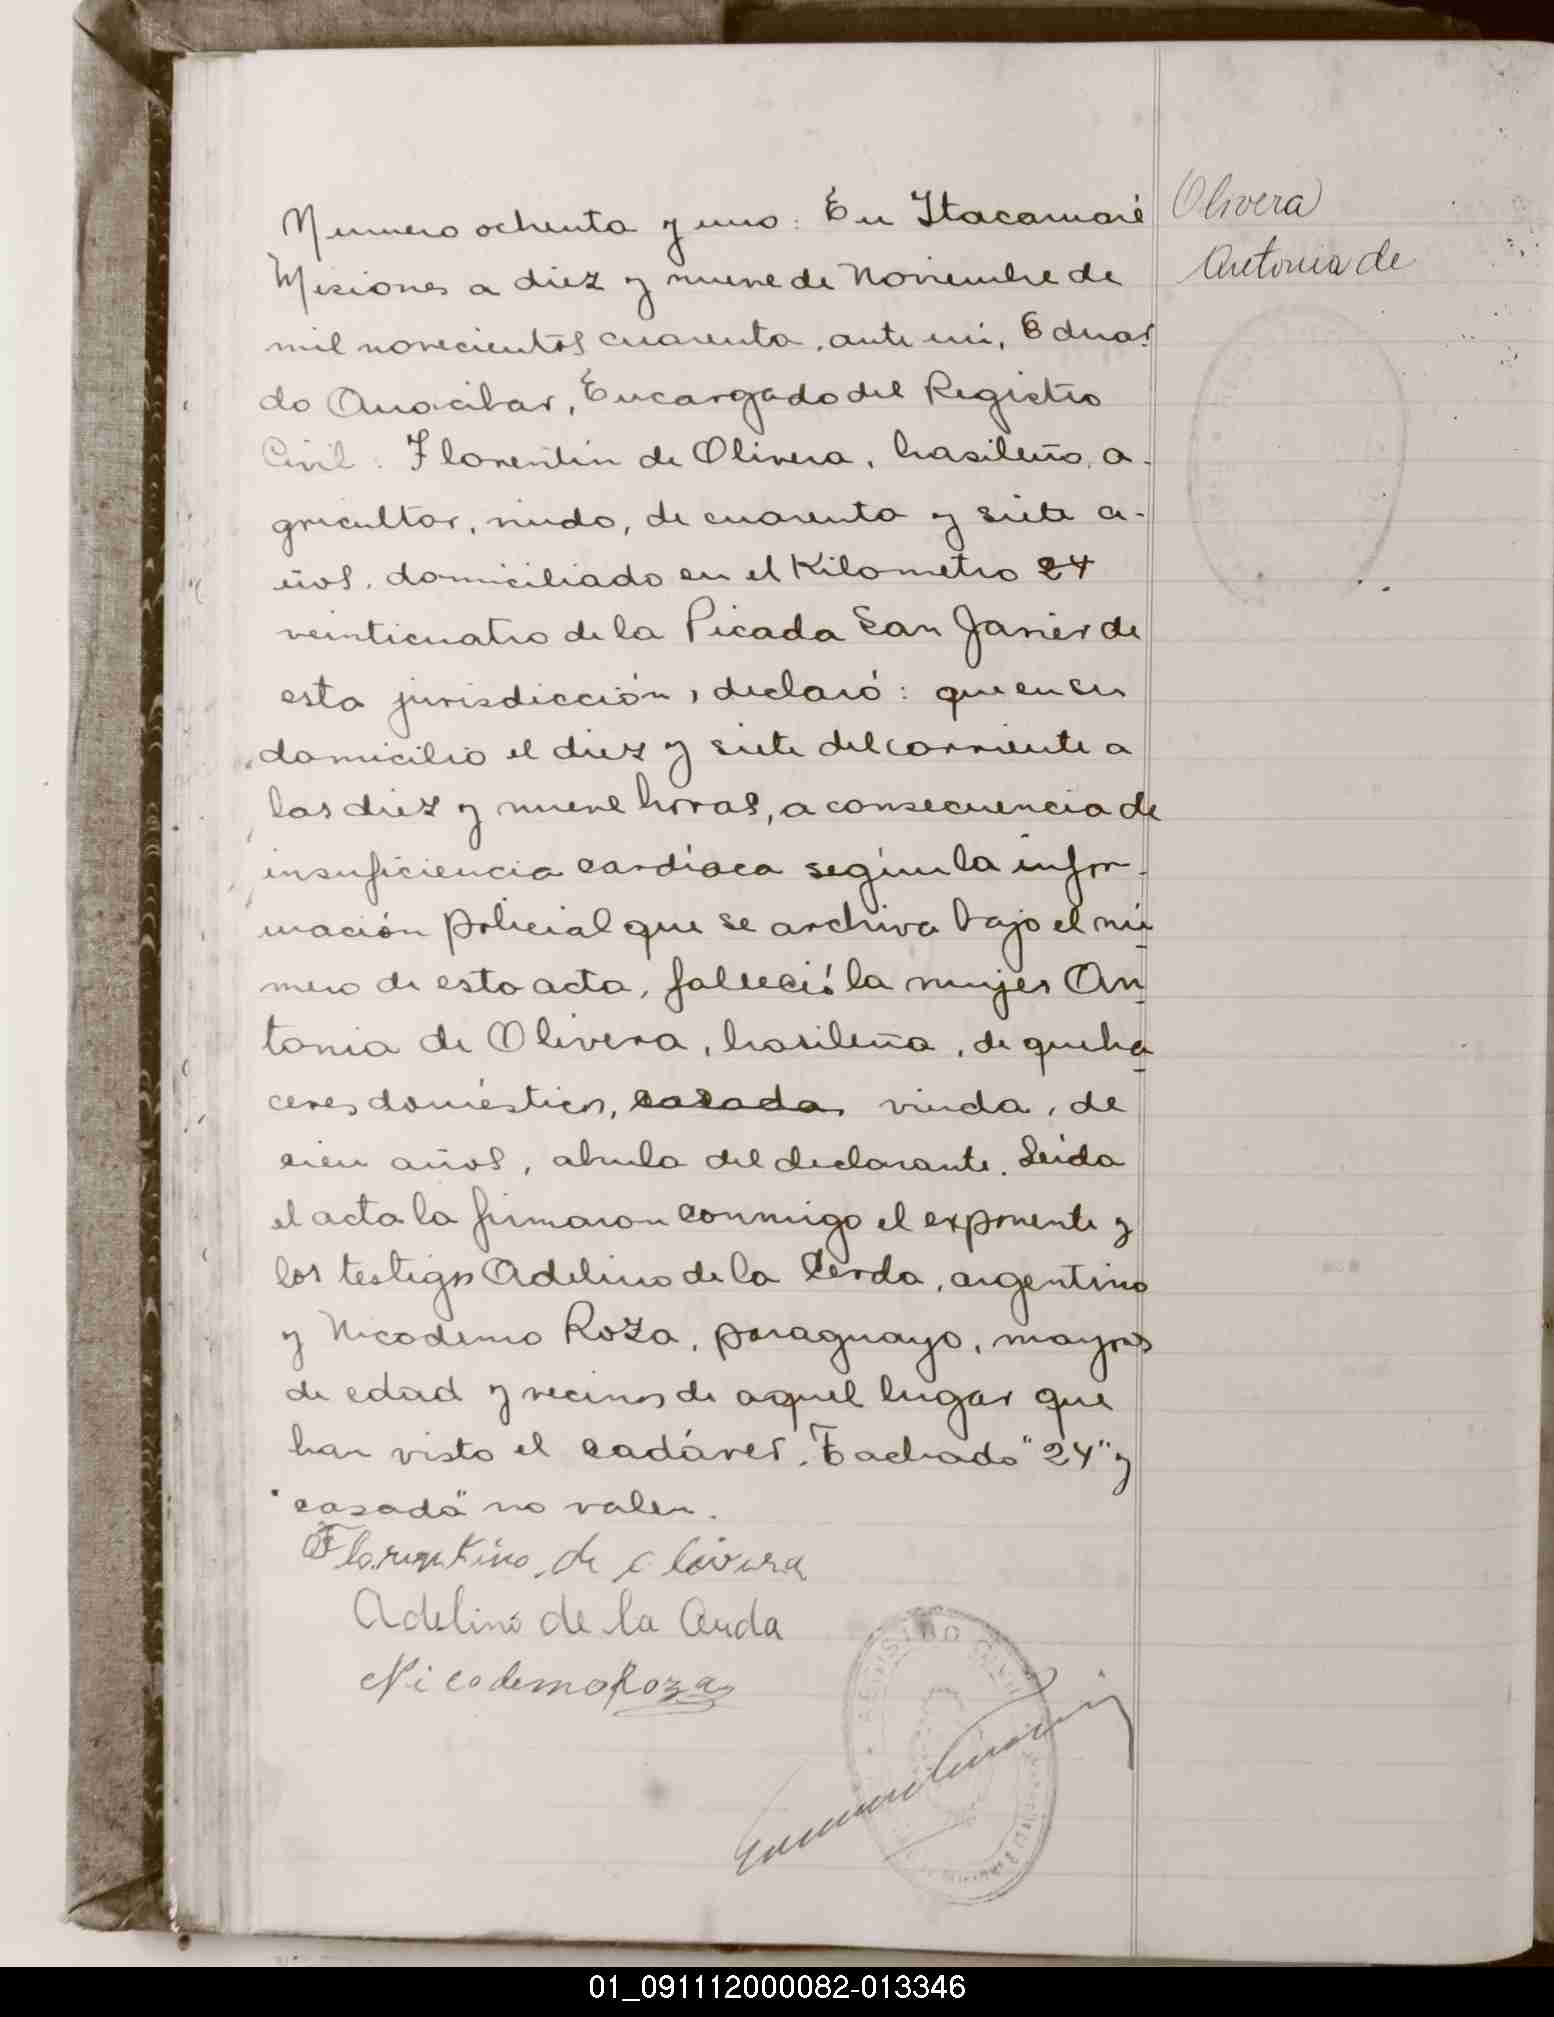 Olivera
Antonia de
Numero ochenta y uno: En Itacaruaré
Misiones a diez y nueve de Noviembre de
mil novecientos cuarenta, ante mi, Eduar
do Anacibar, Encargado del Registro
Civil: Florentín de Olivera, brasileño, a-
gricultor, viudo, de cuarenta y siete a-
ños, domiciliado en el Kilometro 24
veinticuatro de la Picada San Javier de
esta jurisdicción, declaró: que en su
domicilio el diez y siete del corriente a
las diez y nueve horas, a consecuencia de
insuficiencia cardíaca según la infor-
mación policial que se archiva bajo el nú
mero de esta acta, falleció la mujer An
tonia de Olivera, brasileña, de queha
ceres domésticos, casada viuda, de
cien años, abuela del declarante. Leída
el acta la firmaron conmigo el exponente y
los testigos Adelino de la Cerda, argentino
y Nicodemo Roza, paraguayo, mayores
de edad y vecinos de aquel lugar que
han visto el cadáver. Tachado "24" y
"casada" no valen.
Florentino de olivera
Adelino de la Cerda
Nicodemo Roza
REGISTRO CIVIL
01_091112000082-013346